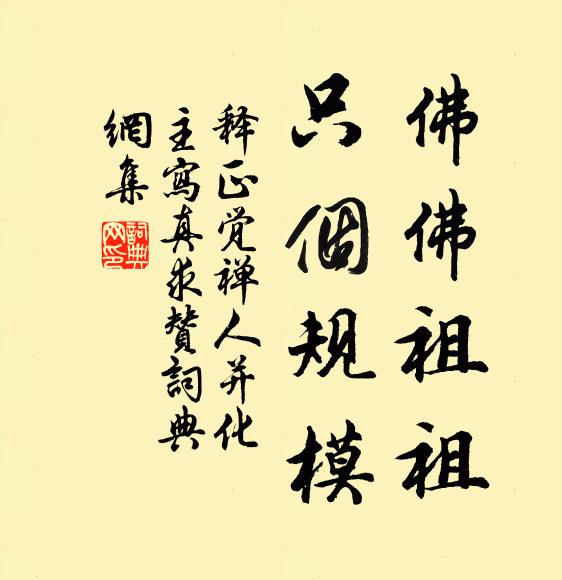 佛佛祖祖
只個規模
释正觉禅人并化
主寫真求贊詞典
網集
詞典網印